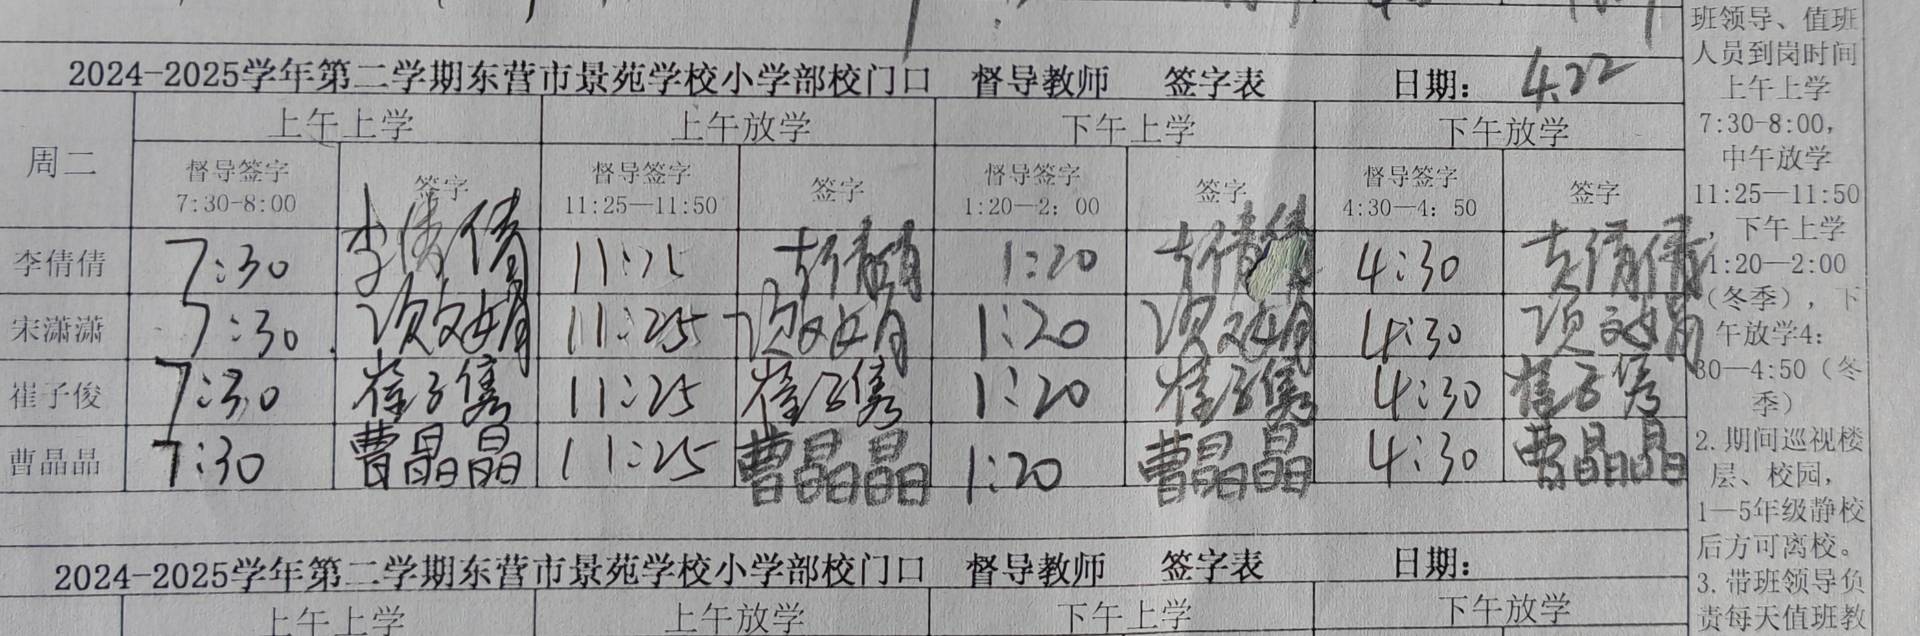 2024-2025学年第二学期东营市景苑学校小学部校门口 督导教师 签字表 日期： 4.22
周二 上午上学 上午放学 下午上学 下午放学
督导签字 7:30-8:00 签字 督导签字 11:25—11:50 签字 督导签字 1:20—2：00 签字 督导签字 4:30—4：50 签字
李倩倩 7:30 李倩倩 11:25 李倩倩 1:20 李倩倩 4:30 李倩倩
宋潇潇 7:30 11:25 1:20 4:30
崔子俊 7:30 崔子隽 11:25 崔子隽 1:20 崔子隽 4:30 崔子隽
曹晶晶 7:30 曹晶晶 11:25 曹晶晶 1:20 曹晶晶 4:30 曹晶晶
2024-2025学年第二学期东营市景苑学校小学部校门口 督导教师 签字表 日期：
上午上学 上午放学 下午上学 下午放学
班领导、值班
人员到岗时间
上午上学
7:30-8:00，
中午放学
11:25—11:50
，下午上学
1:20—2:00
（冬季），下
午放学4：
30—4:50（冬
季）
2.期间巡视楼
层、校园，
1—5年级静校
后方可离校。
3.带班领导负
责每天值班教